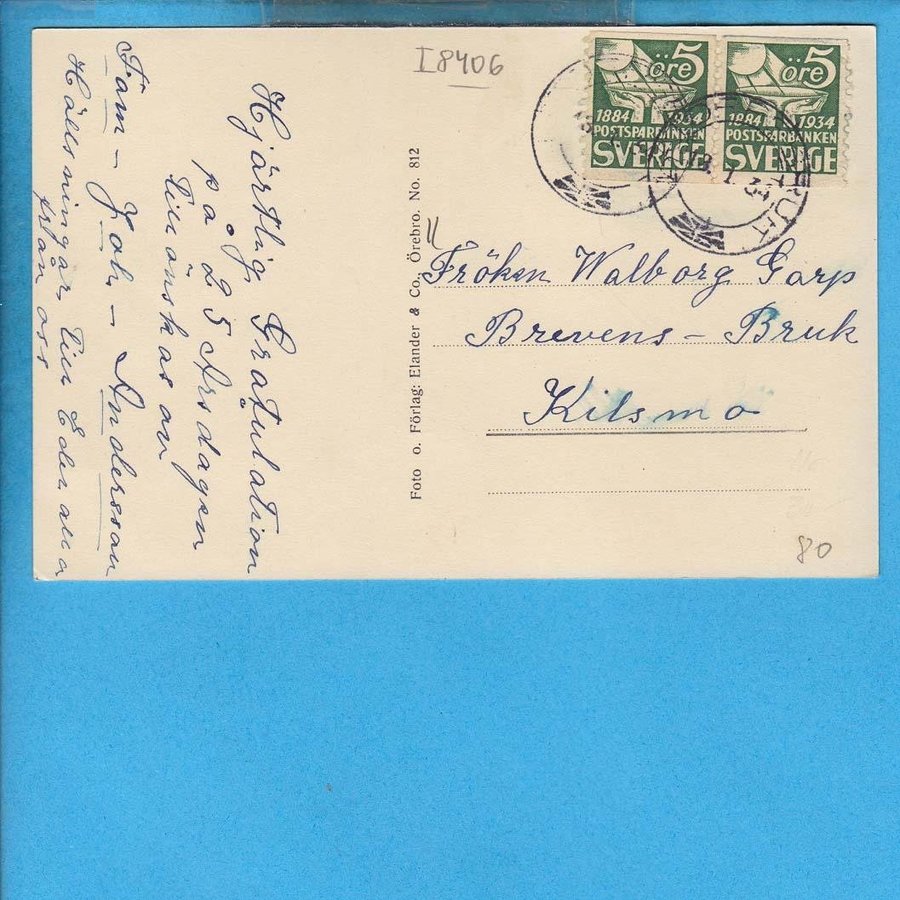 I8406
öre 5
1884 1934
POSTSPARBANKEN
SVERIGE
öre 5
1884 1934
POSTSPARBANKEN
SVERIGE
Hjärtlig Gratulation
på 25 Årsdagen
tillönskas av
Fam - Joh - Andersson
Hällsningar till Eder alla
från oss
Foto o. Förlag: Elander & Co., Örebro. No. 812
Fröken Walborg Garp
Brevens - Bruk
Kilsmo
80